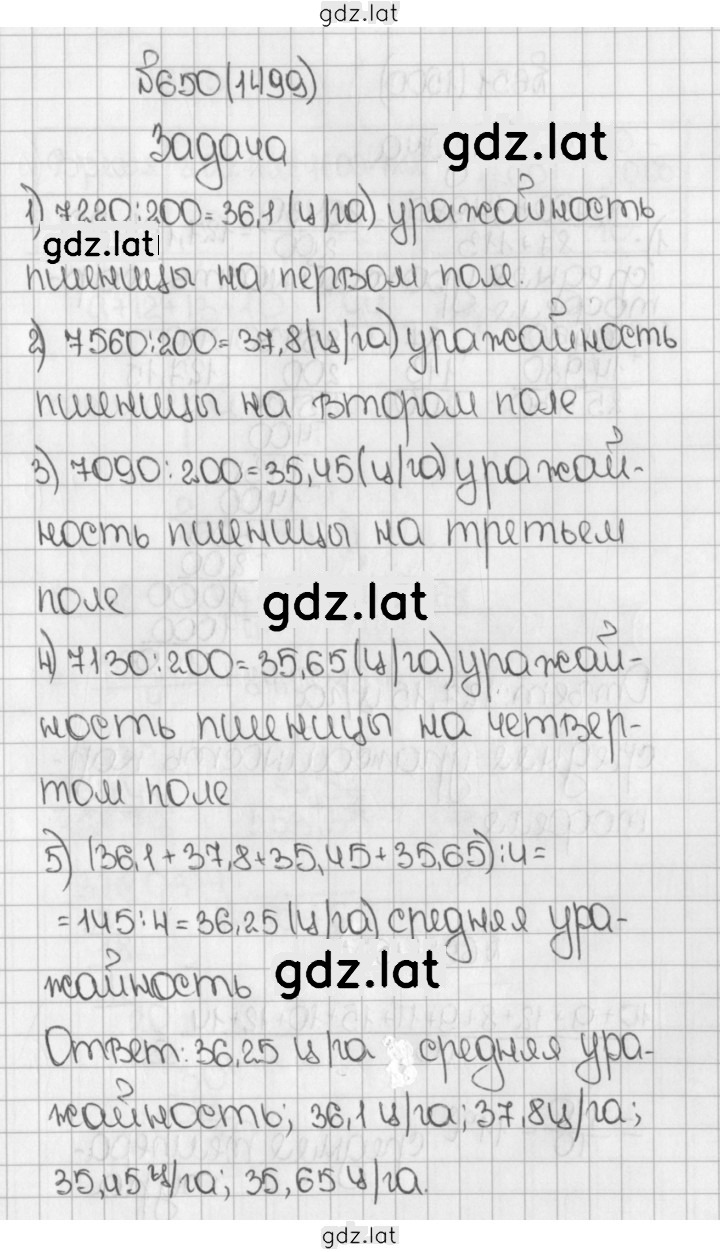 gdz.lat
№650(1499)
Задача
gdz.lat
1) 7220:200=36,1(ц/га) уражайность
gdz.lat
пшеницы на первом поле.
2) 7560:200=37,8(ц/га) уражайность
пшеницы на втором поле
3) 7090:200=35,45(ц/га) уражай-
ность пшеницы на третьем
поле
gdz.lat
4) 7130:200=35,65(ц/га) уражай-
ность пшеницы на четвер-
том поле
5) (36,1+37,8+35,45+35,65):4=
=145:4=36,25(ц/га) средняя ура-
жайность
gdz.lat
Ответ: 36,25 ц/га средняя ура-
жайность; 36,1 ц/га; 37,8ц/га;
35,45ц/га; 35,65 ц/га.
gdz.lat